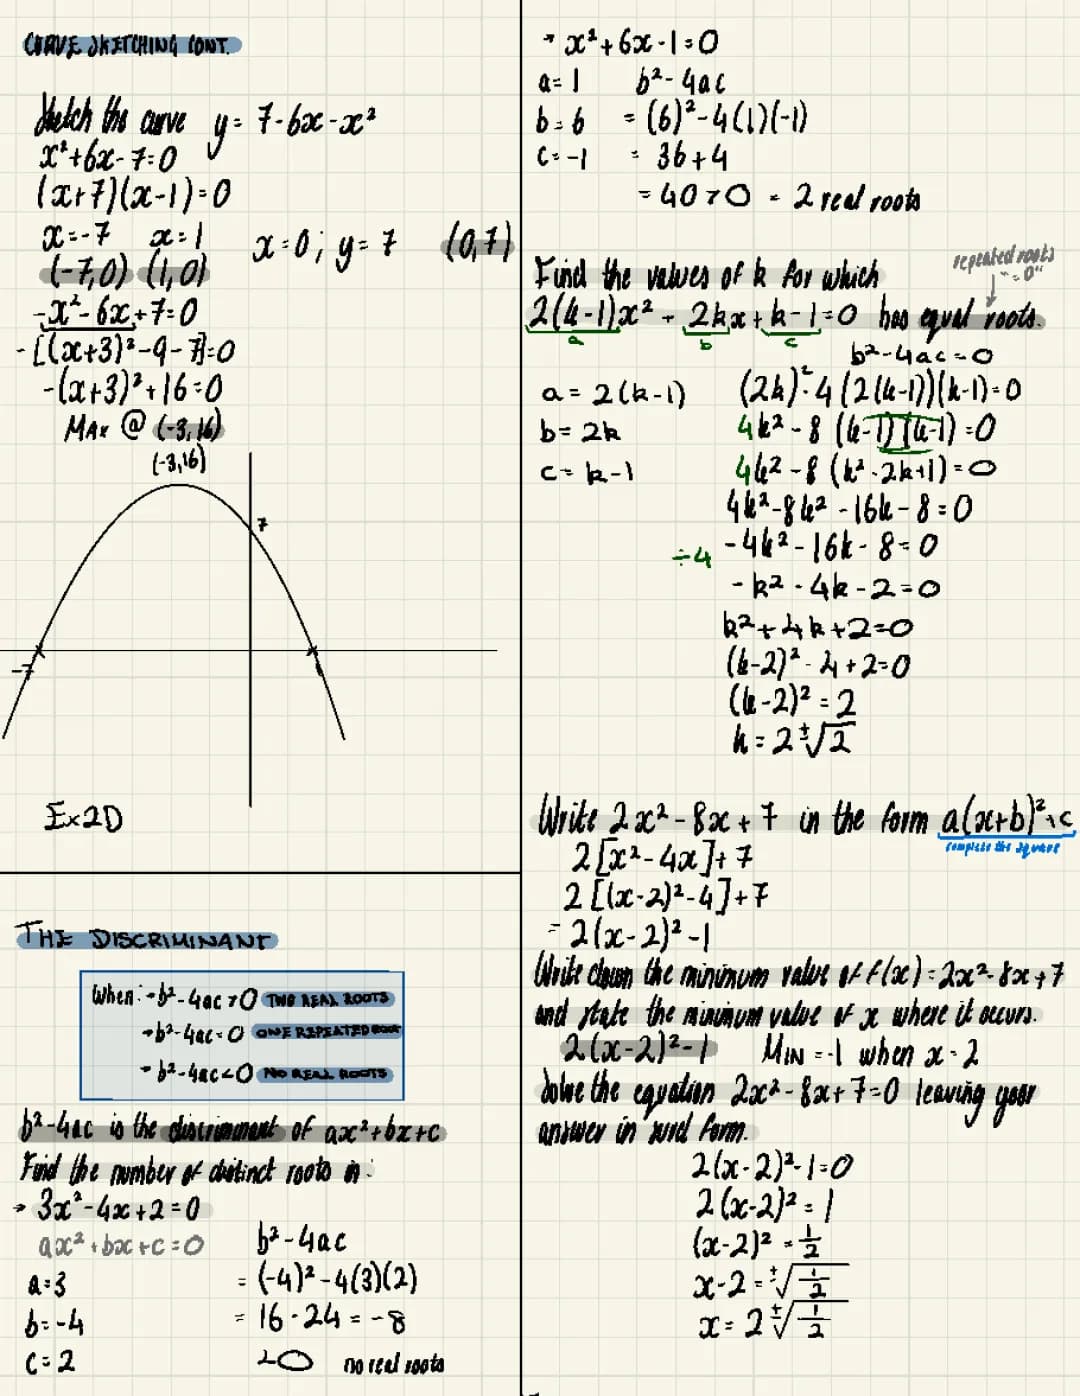 CURVE SKETCHING CONT.
Sketch the curve y = 7-6x-x²
x²+6x-7=0
(x+7)(x-1)=0
x=-7 x=1 x=0; y=7 (0,7)
(-7,0) (1,0)
-x²-6x+7=0
-[(x+3)²-9-7]=0
-(x+3)²+16=0
MAX @ (-3,16)
(-3,16)
7
-7
Ex2D
THE DISCRIMINANT
When: -b²-4ac>0 TWO REAL ROOTS
→b²-4ac=0 ONE REPEATED ROOT
-b²-4ac<0 NO REAL ROOTS
b²-4ac is the discriminant of ax²+bx+c
Find the number of distinct roots in:
→ 3x²-4x+2=0
ax²+bx+c=0 b²-4ac
a=3 = (-4)²-4(3)(2)
b=-4 = 16-24 = -8
c=2 <0 no real roots
→ x²+6x-1=0
a=1 b²-4ac
b=6 = (6)²-4(1)(-1)
c=-1 = 36+4
= 40>0 = 2 real roots
repeated roots
"=0"
Find the values of k for which
2(k-1)x² + 2kx + k-1=0 has equal roots.
a b c
b²-4ac=0
a = 2(k-1) (2k)²-4(2(k-1))(k-1)=0
b= 2k 4k²-8(k-1)(k-1)=0
c= k-1 4k²-8(k²-2k+1)=0
4k²-8k²-16k-8=0
÷4 -4k²-16k-8=0
-k²-4k-2=0
k²+4k+2=0
(k-2)²-4+2=0
(k-2)²=2
k=2±√2
Write 2x²-8x+7 in the form a(x+b)²+c
complete the square
2[x²-4x]+7
2[(x-2)²-4]+7
=2(x-2)²-1
Write down the minimum value of f(x)=2x²-8x+7
and state the minimum value of x where it occurs.
2(x-2)²-1 MIN=-1 when x=2
Solve the equation 2x²-8x+7=0 leaving your
answer in surd form.
2(x-2)²-1=0
2(x-2)²=1
(x-2)²=½
x-2=±√½
x=2±√½